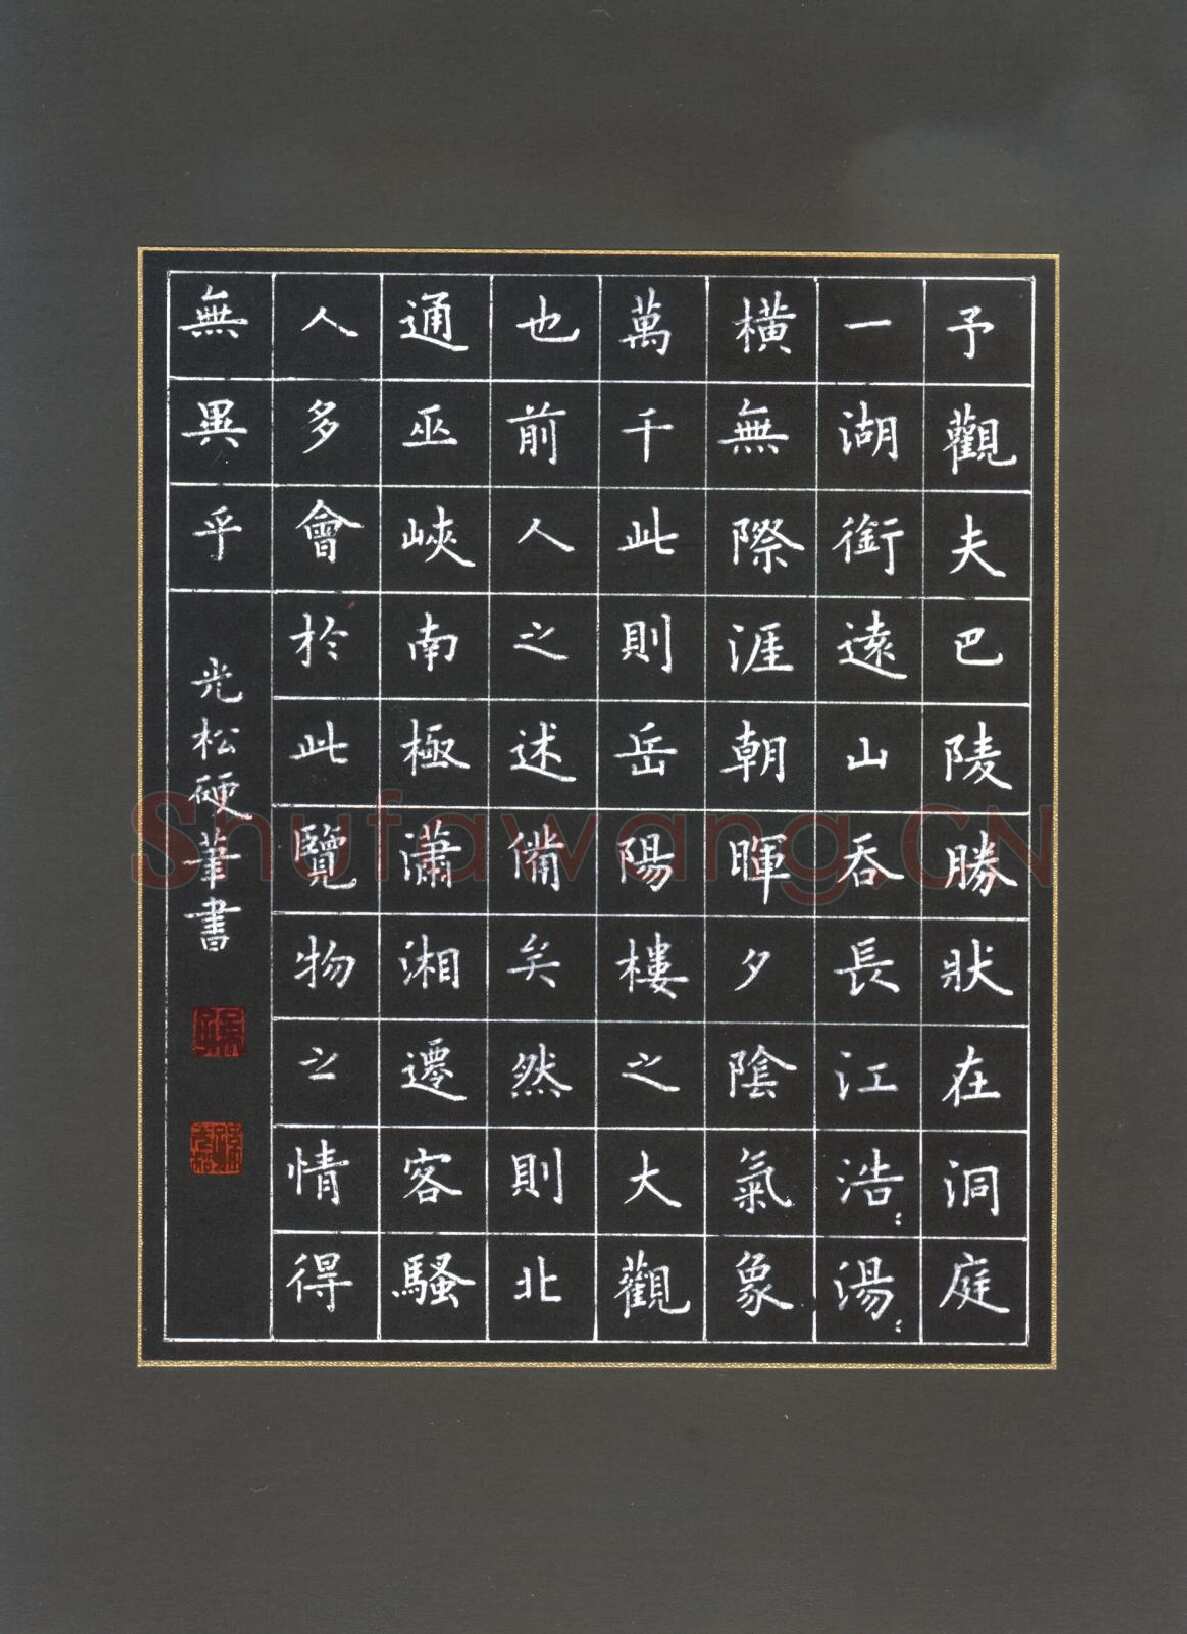 予觀夫巴陵勝狀在洞庭
一湖銜遠山吞長江浩:湯:
橫無際涯朝暉夕陰氣象
萬千此則岳陽樓之大觀
也前人之述備矣然則北
通巫峽南極瀟湘遷客騷
人多會於此覽物之情得
無異乎
光松硬筆書
Shufawang.CN